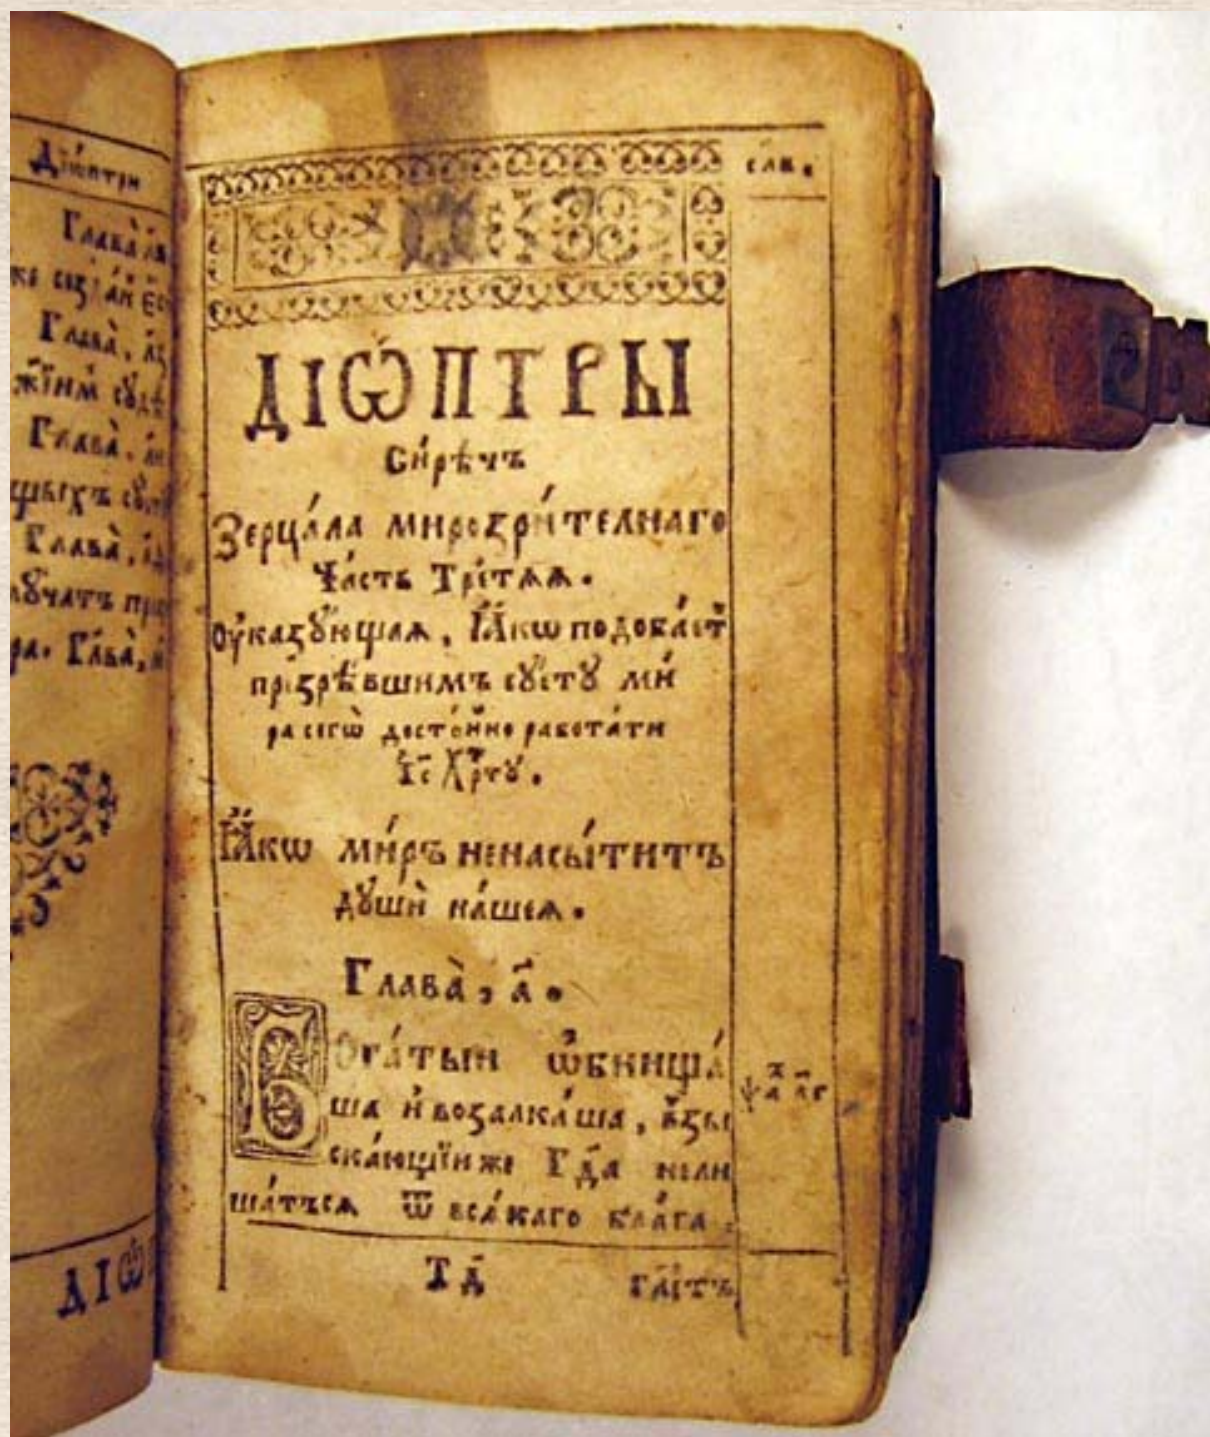 Дїѡ́птри
Глава̀
Глава̀,
Глава̀.
Глава̀,
Глава̀,
ДІѠ҆
слв.
ДІѠ҆ПТРЫ
Си́рѣчъ
Зерца́ла мирозри́телнаго
Ча́сть Тре́тѧѧ.
Оу҆казꙋ́ющаѧ, Ꙗ҆́кѡ подоба́етъ
презрѣ́вшимъ сꙋетꙋ̀ ми́
ра сегѡ̀ досто́йно рабо́тати
І҆с҃ Хр҃тꙋ̀.
Ꙗ҆́кѡ ми́ръ ненасы́титъ
дꙋшѝ на́шеѧ.
Глава̀, а҃.
Бога́тыи ѡ҆бнища́
ша и҆ возалка́ша, взы
ска́ющїи же Гд҃а нели
ша́тъсѧ ѿ вса́каго бла́га.
ѱа л҃г
Тд҃
гл҃етъ